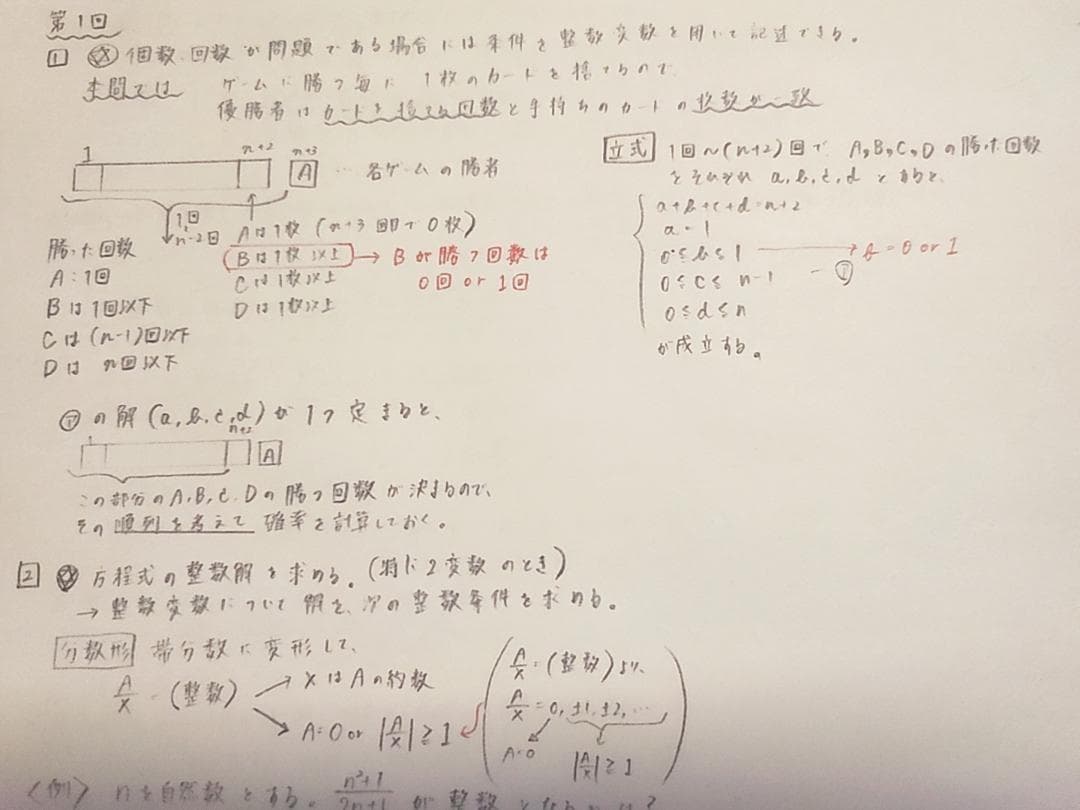 第1回
1 個数、回数が問題である場合には条件を整数変数を用いて記述できる。
本問では ゲームに勝つ毎に 1枚のカードを捨てるので
優勝者はカードを捨てる回数と手持ちのカードの枚数が一致
1 n+2 n+3
A … 各ゲームの勝者
1回~n-2回
Aは1枚 (n+3回目で0枚)
Bは1枚以上 → Bが勝つ回数は
0回 or 1回
Cは1枚以上
Dは1枚以上
勝った回数
A:1回
Bは1回以下
Cは(n-1)回以下
Dは n回以下
立式 1回~(n+2)回で、A,B,C,Dの勝った回数
をそれぞれ a,b,c,d とすると、
a+b+c+d=n+2
a=1
0≦b≦1 → b=0 or 1
0≦c≦n-1 -㋐
0≦d≦n
が成立する。
㋐の解(a,b,c,d)が1つ定まると、
1 n+2 A
この部分のA,B,C,Dの勝つ回数が決まるので、
その順列を考えて確率を計算しておく。
2 方程式の整数解を求める。(特に2変数のとき)
→ 整数変数について解き、次の整数条件を求める。
分数形 帯分数に変形して、
A/x=(整数) → xはAの約数
→ A=0 or |A/x|≧1
A/x=(整数)より、
A/x=0,±1,±2,…
A=0 |A/x|≧1
〈例〉 nを自然数とする。 n²+1/2n+1 が整数と